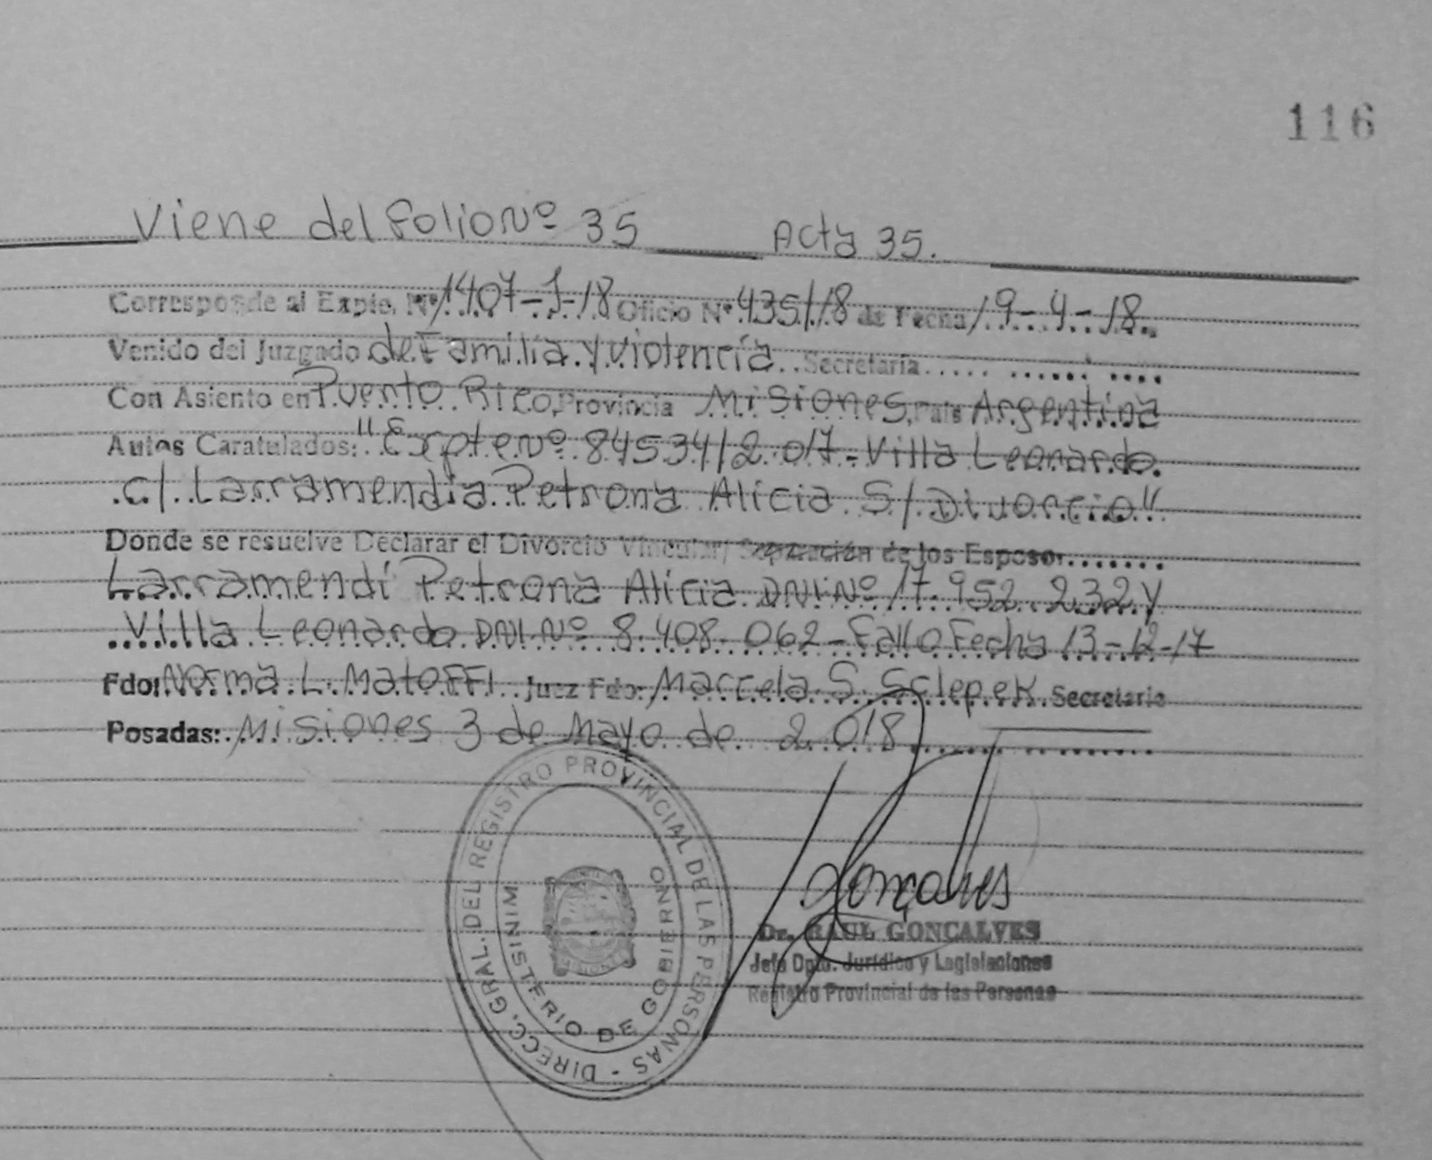 116
Viene del folio Nº 35 Acta 35.
Corresponde al Expte. Nº 1407-J-18 Oficio Nº 435/18 de Fecha 19-4-18.
Venido del Juzgado de Familia y violencia Secretaría
Con Asiento en Puerto Rico, Provincia Misiones, País Argentina
Autos Caratulados: "Expte nº 84534/2017- Villa Leonardo
c/ Larramendia Petrona Alicia S/ Divorcio"
Donde se resuelve Declarar el Divorcio Vincular/ Separación de los Esposos
Larramendi Petrona Alicia DNI Nº 17.952.232 y
Villa Leonardo DNI Nº 8.408.062 - Fallo Fecha 13-12-17
Fdo: Norma L. Matoffi Juez Fdo: Marcela S. Sclepek Secretario
Posadas: Misiones 3 de Mayo de 2.018
DIRECC. GRAL. DEL REGISTRO PROVINCIAL DE LAS PERSONAS -
MINISTERIO DE GOBIERNO
Gonçalves
Dr. RAUL GONCALVES
Jefe Dpto. Jurídico y Legislaciones
Registro Provincial de las Personas